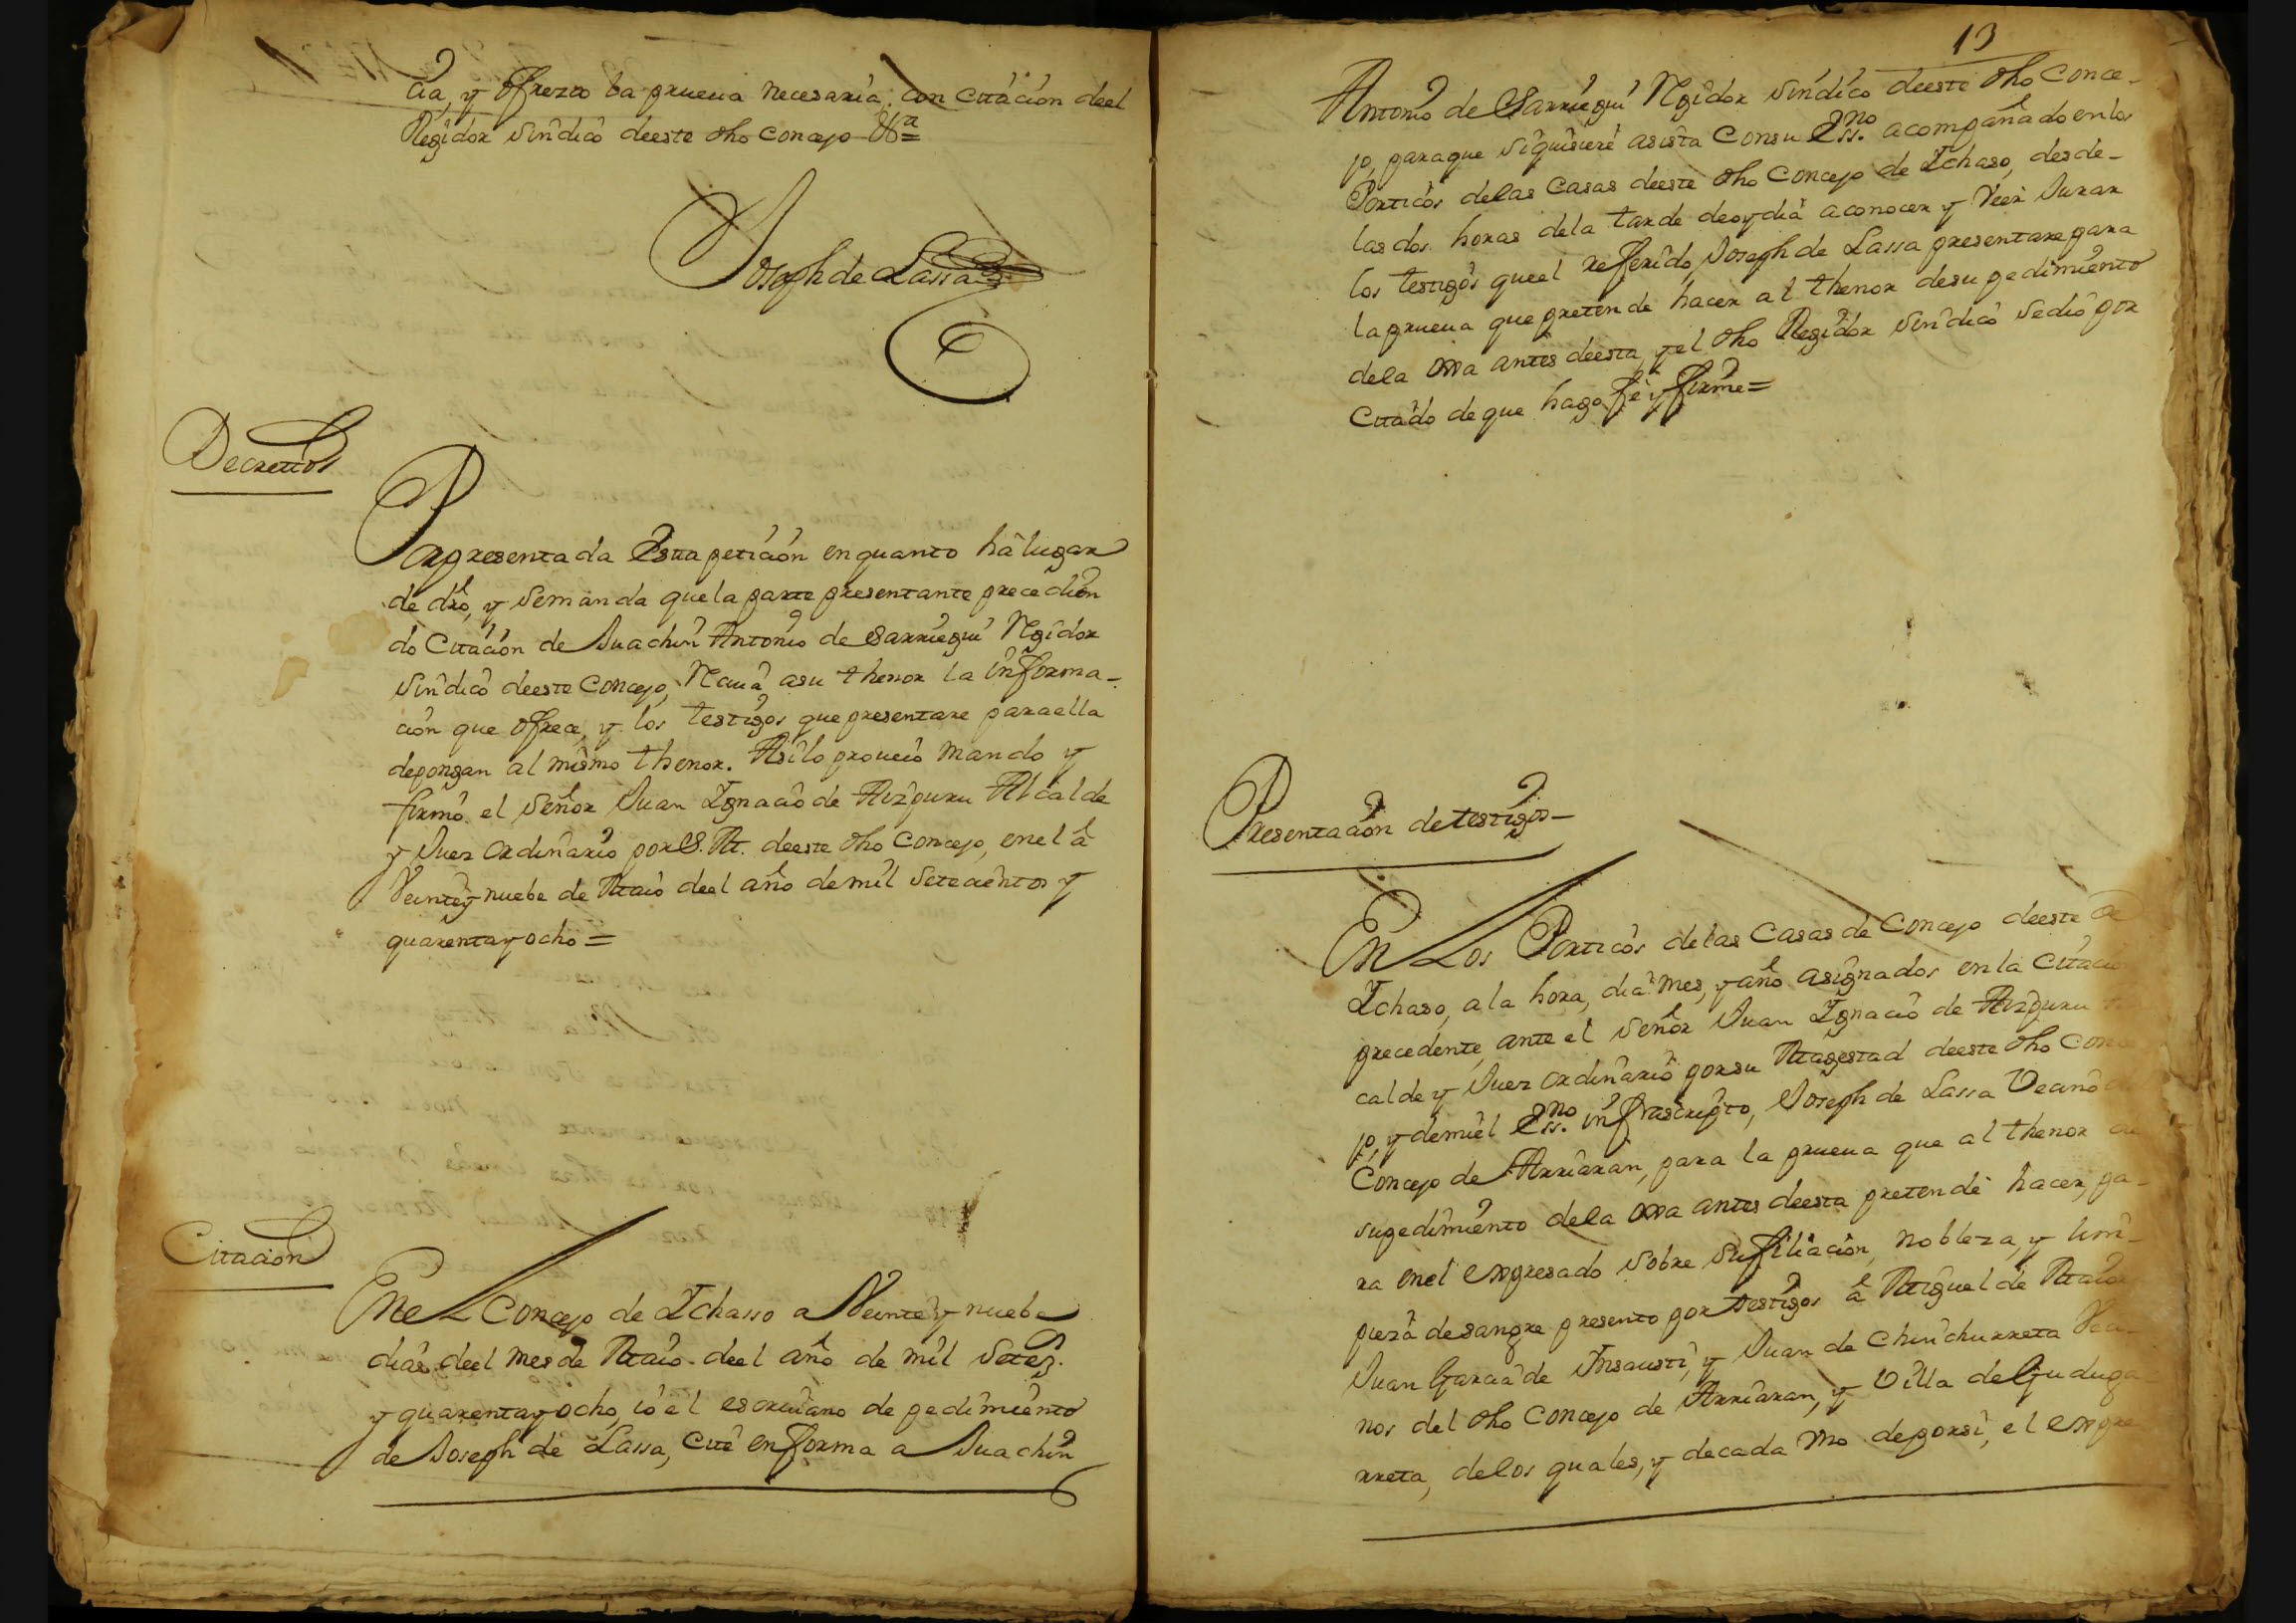 cia, y ofrezco la prueua necesaria, con citación deel
Regidor sindico deeste dho concejo Vtta=
Joseph de Lassa
Decretto
Por presentada Estta petición en quanto hâ lugar
de dro, y semanda que la parte presentante precedien
do Citación de Juachin Antonio de Sarriegui Rxidor
sindico deeste Concejo, Reciuâ asu thenor la informa-
ción que ofrece, y los testigos que presentare para ella
depongan al mismo thenor. Asilo proueio mando y
firmó el señor Juan Ignacio de Aizpuru Alcalde
y Juez ordinario por S. M. deeste dho Concejo, en el â
Veintey nuebe de Maio deel año de mil setecientos y
quarentay ocho =
Citación
En el Concejo de Ichasso a Veinte y nuebe
dias deel mes de Maio deel año de mil setez.
y quarentay ocho, io el escriuano de pedimiento
de Joseph de Lassa, Cité en forma a Juachin
13
Antonio de Sarriegui Rxidor sindico deeste dho Conce-
jo, paraque siquisieré asista Consu Essno. acompañado en los
Porticos delas Casas deeste dho Concejo de Ichaso, desde-
las dos horas dela tarde deoydia aconocer y Veer Jurar
los testigos queel referido Joseph de Lassa presentare para
la prueua que pretende hacer al thenor desu pedimiento
dela oxa antes deesta, y el dho Regidor sindico sedio por
Citado de que hago fé y firme=
Presentación de testigos-
En Los Porticos delas Casas de Concejo deeste de
Ichaso, a la hora, dia mes, y año asignados en la Citacio
precedente, ante el señor Juan Ignacio de Aizpuru
calde y Juez ordinario porsu Magestad deeste dho Conce
jo, y demiel Essno. infrascripto, Joseph de Lassa Vecino
Concejo de Arriaran, para la prueua que al thenor de
supedimiento dela oxa antes deesta pretende hacer, pa-
ra enel expresado sobre su filiación, nobleza, y lim-
pieza de sangre presento por testigos â Miguel de Maio
Juan Garcia de Insausti, y Juan de Chinchurreta Veci-
nos del dho Concejo de Arriaran, y Villa de Guduga
rreta, delos quales, y decada vno deporsi, el expre